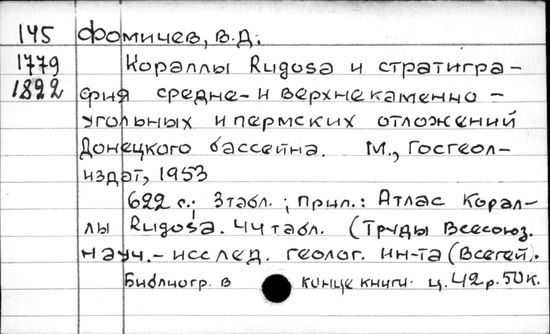 145 Фомичев, В.Д.
1779 Кораллы Rugosa и стратигра-
1822 фия средне- и верхнекаменно-
угольных и пермских отложений
Донецкого бассейна. М., Госгеол-
издат, 1953
622 с.; 3табл.; Прил.: Атлас Корал-
лы Rugosa. 44 табл. (Труды Всесоюз.
науч.-исслед. геолог. ин-та (Всегей).
Библиогр. в конце книги. ц. 42 р. 50 к.